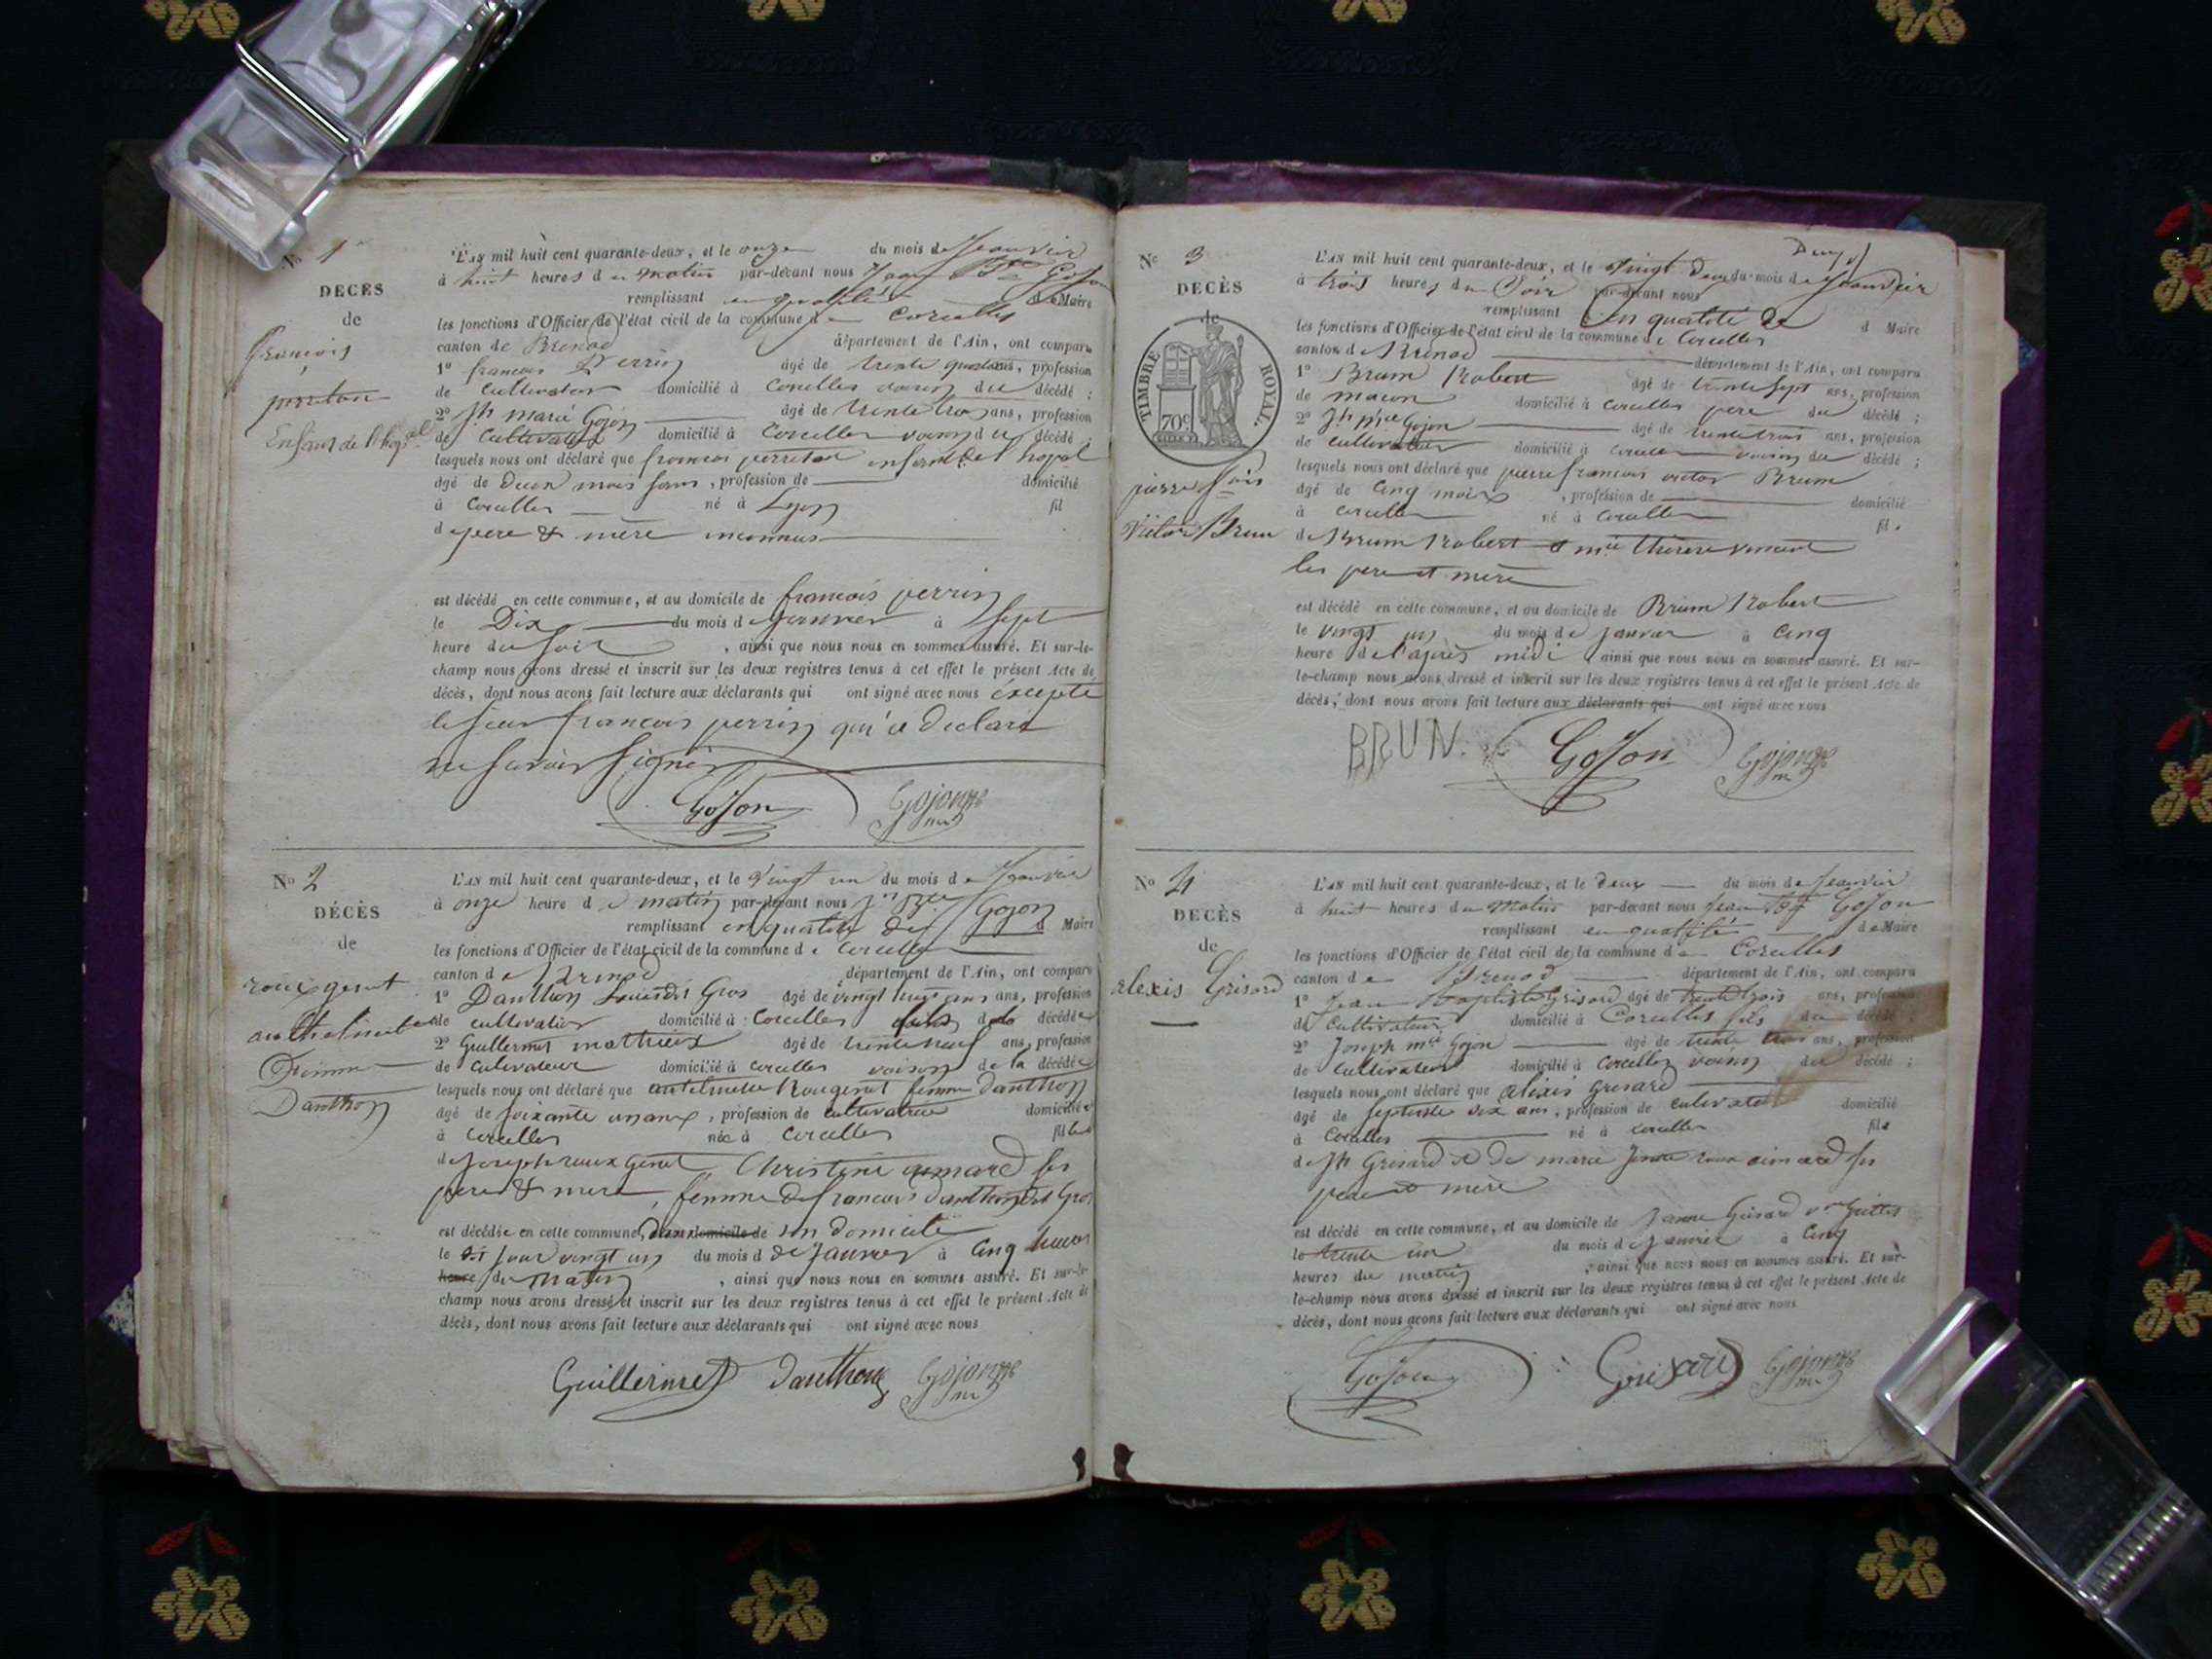 No 1
DÉCÈS
de
françois
perreton
Enfant de l'hôpal
L'AN mil huit cent quarante-deux, et le onze du mois de Janvier
à huit heures du matin par-devant nous Bte Gojon
remplissant en qualité de Maire
les fonctions d'Officier de l'état civil de la commune de Corcelles
canton de Brenod département de l'Ain, ont comparu
1° francois Perrin agé de trente ans, profession
de Cultivateur domicilié à Corcelles voisin du décédé ;
2° Jh marie Gojon agé de trente trois ans, profession
de Cultivateur domicilié à Corcelles voisin du décédé ;
lesquels nous ont déclaré que francois perreton enfant de l'hopal
âgé de deux mois , profession de domicilié
à Corcelles né à Lyon fil
de pere & mère inconnus
est décédé en cette commune, et au domicile de francois perrin
le Dix du mois de Janvier à Sept
heure du soir , ainsi que nous nous en sommes assuré. Et sur-le-
champ nous avons dressé et inscrit sur les deux registres tenus à cet effet le présent Acte de
décès, dont nous avons fait lecture aux déclarants qui ont signé avec nous excepté
le sieur francois perrin qu'a declaré
ne savoir signer
Gojon Gojon
No 2
DÉCÈS
de
roux genot
anthelmette
Femme
Danthon
L'AN mil huit cent quarante-deux, et le Vingt un du mois de Janvier
à onze heure du matin par-devant nous Gojon
remplissant en qualité de d Maire
les fonctions d'Officier de l'état civil de la commune de Corcelles
canton de Brenod département de l'Ain, ont comparu
1° Danthon Louis dit Gros agé de vingt ans, profession
de cultivatior domicilié à Corcelles de la décédée
2° Guillermet mathieux agé de trente neuf ans, profession
de Cultivateur domicilié à Corcelles voison de la décédée
lesquels nous ont déclaré que antelmette Rougenot femme Danthon
âgé de soixante un ans , profession de cultivatrice domiciliée
à Corcelles née à Corcelles fille
de Joseph roux Genot Christine aimard ses
pere & mere , femme de francois danthon dit Gros
est décédée en cette commune, dans domicile de son domicile
le jour vingt un du mois d de Janvier à Cinq heures
heure du matin , ainsi que nous nous en sommes assuré. Et sur-le-
champ nous avons dressé et inscrit sur les deux registres tenus à cet effet le présent Acte de
décès, dont nous avons fait lecture aux déclarants qui ont signé avec nous
Guillermet Danthon Gojon
No 3
DÉCÈS
de
TIMBRE ROYAL
70c
pierre fois
Victor Brun
L'AN mil huit cent quarante-deux, et le vingt deux du mois de Janvier
à trois heures du Soir par-devant nous
remplissant en qualité de d Maire
les fonctions d'Officier de l'état civil de la commune de Corcelles
canton d Brenod département de l'Ain, ont comparu
1° Brun Robert agé de trente sept ans, profession
de macon domicilié à Corcelles pere du décédé ;
2° Jh mie Gojon agé de trente trois ans, profession
de cultivateur domicilié à Corcelles voisin du décédé ;
lesquels nous ont déclaré que pierre francois victor Brun
âgé de Cinq mois , profession de domicilié
à Corcelles né à Corcelles fil
de Brun Robert & mie thérèse vincent
les pere et mère
est décédé en cette commune, et au domicile de Brun Robert
le vingt un du mois de janvier à Cinq
heure de l'après midi , ainsi que nous nous en sommes assuré. Et sur-
le-champ nous avons dressé et inscrit sur les deux registres tenus à cet effet le présent Acte de
décès, dont nous avons fait lecture aux déclarants qui ont signé avec nous
BRUN. Gojon Gojon
No 4
DÉCÈS
de
alexis Grisard
L'AN mil huit cent quarante-deux, et le deux du mois de Jeanvier
à huit heures du Matin par-devant nous Jean Gojon
remplissant en qualité de Maire
les fonctions d'Officier de l'état civil de la commune de Corcelles
canton de Brenod département de l'Ain, ont comparu
1° Jean Baptiste Grisard agé de trente trois ans, profession
de Cultivateur domicilié à Corcelles fils du décédé ;
2° Joseph mie Gojon agé de trente trois ans, profession
de Cultivateur domicilié à Corcelles voisin du décédé ;
lesquels nous ont déclaré que alexis Grisard
âgé de septente dix ans , profession de cultivateur domicilié
à Corcelles né à Corcelles fils
de Jh Grisard & de marie roux aimard ses
pere et mère
est décédé en cette commune, et au domicile de Grisard
le trente un du mois de Janvier à Cinq
heures du matin , ainsi que nous nous en sommes assuré. Et sur-
le-champ nous avons dressé et inscrit sur les deux registres tenus à cet effet le présent Acte de
décès, dont nous avons fait lecture aux déclarants qui ont signé avec nous
Gojon Grisard Gojon